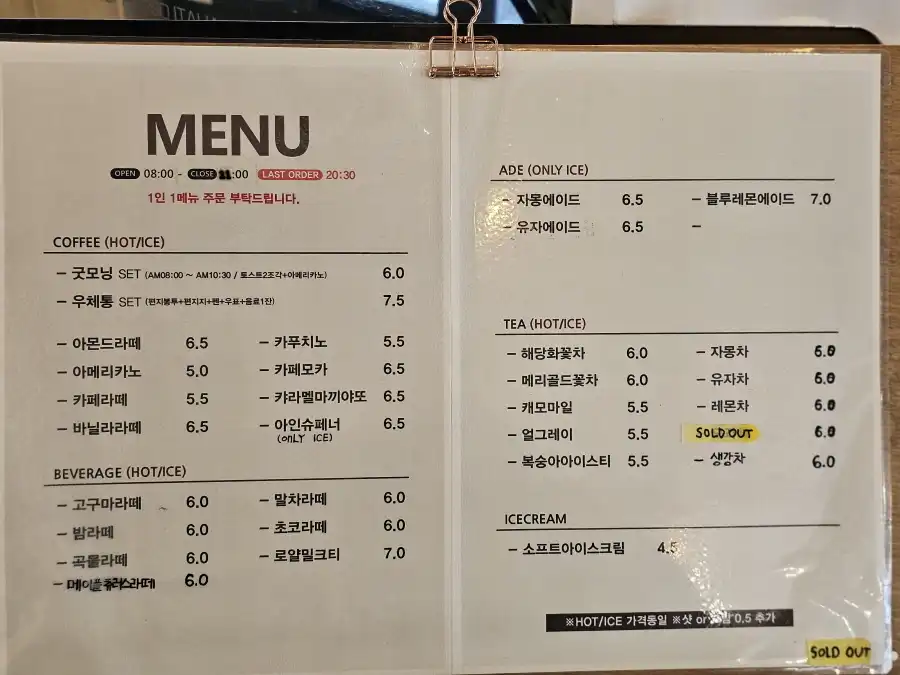 MENU
OPEN 08:00 - CLOSE :00 LAST ORDER 20:30
1인 1메뉴 주문 부탁드립니다.
COFFEE (HOT/ICE)
– 굿모닝 SET (AM08:00 ~ AM10:30 / 토스트2조각+아메리카노) 6.0
– 우체통 SET (편지봉투+편지지+펜+우표+음료1잔) 7.5
– 아몬드라떼 6.5 – 카푸치노 5.5
– 아메리카노 5.0 – 카페모카 6.5
– 카페라떼 5.5 – 캬라멜마끼야또 6.5
– 바닐라라떼 6.5 – 아인슈페너 6.5
(ONLY ICE)
BEVERAGE (HOT/ICE)
– 고구마라떼 6.0 – 말차라떼 6.0
– 밤라떼 6.0 – 초코라떼 6.0
– 곡물라떼 6.0 – 로얄밀크티 7.0
– 6.0
ADE (ONLY ICE)
– 자몽에이드 6.5 – 블루레몬에이드 7.0
– 유자에이드 6.5 –
TEA (HOT/ICE)
– 해당화꽃차 6.0 – 자몽차 6.0
– 메리골드꽃차 6.0 – 유자차 6.0
– 캐모마일 5.5 – 레몬차 6.0
– 얼그레이 5.5 SOLD OUT 6.0
– 복숭아아이스티 5.5 – 생강차 6.0
ICECREAM
– 소프트아이스크림 4.5
※HOT/ICE 가격동일 ※샷 or 0.5 추가
SOLD OUT